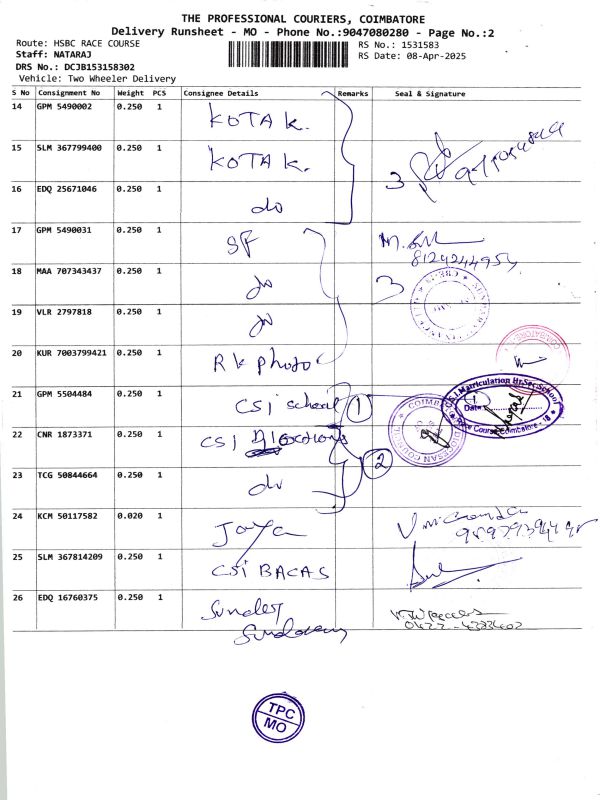 THE PROFESSIONAL COURIERS, COIMBATORE
Delivery Runsheet - MO - Phone No.:9047080280 - Page No.:2
Route: HSBC RACE COURSE
Staff: NATARAJ
DRS No.: DCJB153158302
Vehicle: Two Wheeler Delivery
RS No.: 1531583
RS Date: 08-Apr-2025
S No Consignment No Weight PCS Consignee Details Remarks Seal & Signature
14 GPM 5490002 0.250 1 KOTAK.
15 SLM 367799400 0.250 1 KOTAK.
16 EDQ 25671046 0.250 1 do 3
17 GPM 5490031 0.250 1 SF
8124244954
18 MAA 707343437 0.250 1 do 3
19 VLR 2797818 0.250 1 do
20 KUR 7003799421 0.250 1 RK photo
21 GPM 5504484 0.250 1 CSI School 1
C.S.I. Matriculation Hr.Sec.School
Date
Race Course Coimbatore - 18
22 CNR 1873371 0.250 1 CSI
2
23 TCG 50844664 0.250 1 do
24 KCM 50117582 0.020 1 Jaya
25 SLM 367814209 0.250 1 CSI BACAS
26 EDQ 16760375 0.250 1 Sunder
TPC
MO